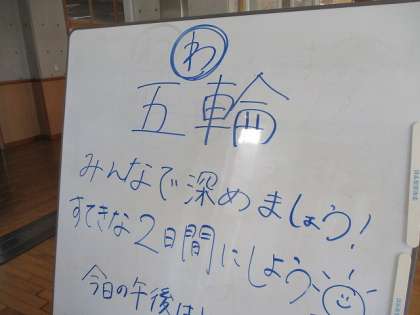 わ
五輪
みんなで深めましょう!
すてきな2日間にしよう
今日の午後は